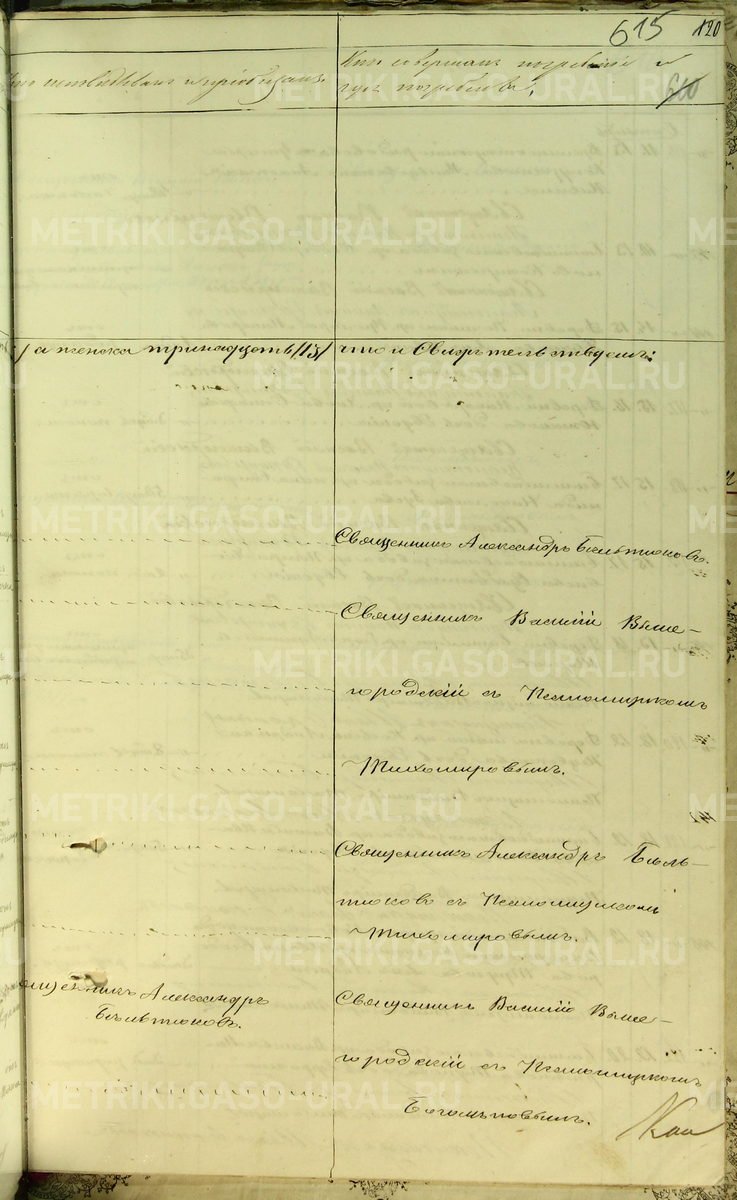 615 120
Кто исповѣдывалъ и пріобщалъ.
Кто совершалъ погребеніе и
гдѣ погребены.
610
а женска тринадцать /13/ что и Свидѣтельствуемъ:
Священникъ Александръ Бѣльтюковъ.
Священникъ Василій Выше-
городскій съ Псаломщикомъ
Тихомировымъ.
Священникъ Александръ Бѣль-
тюковъ съ Псаломщикомъ
Тихомировымъ.
Священникъ Александръ
Бѣльтюковъ.
Священникъ Василій Выше-
городскій съ Псаломщикомъ
METRIKI.GASO-URAL.RU